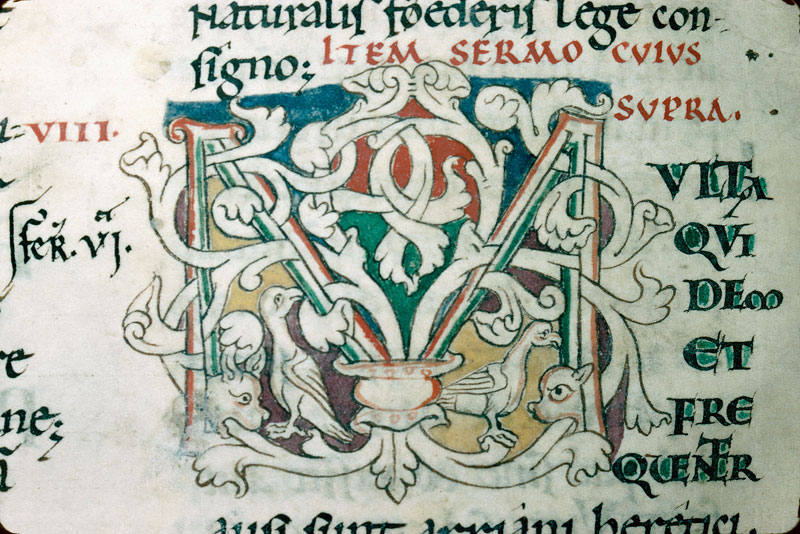 Naturalis foederis lege con-
signo;
ITEM SERMO CVIVS
SVPRA.
VIII.
fer. vi.
M
VLTA
QVI
DEM
ET
FRE
QUENTER
ausi sunt arriani heretici
ne;